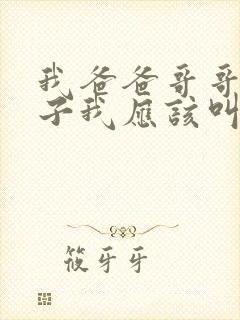 我爸爸哥哥
子我应该叫
筱牙牙